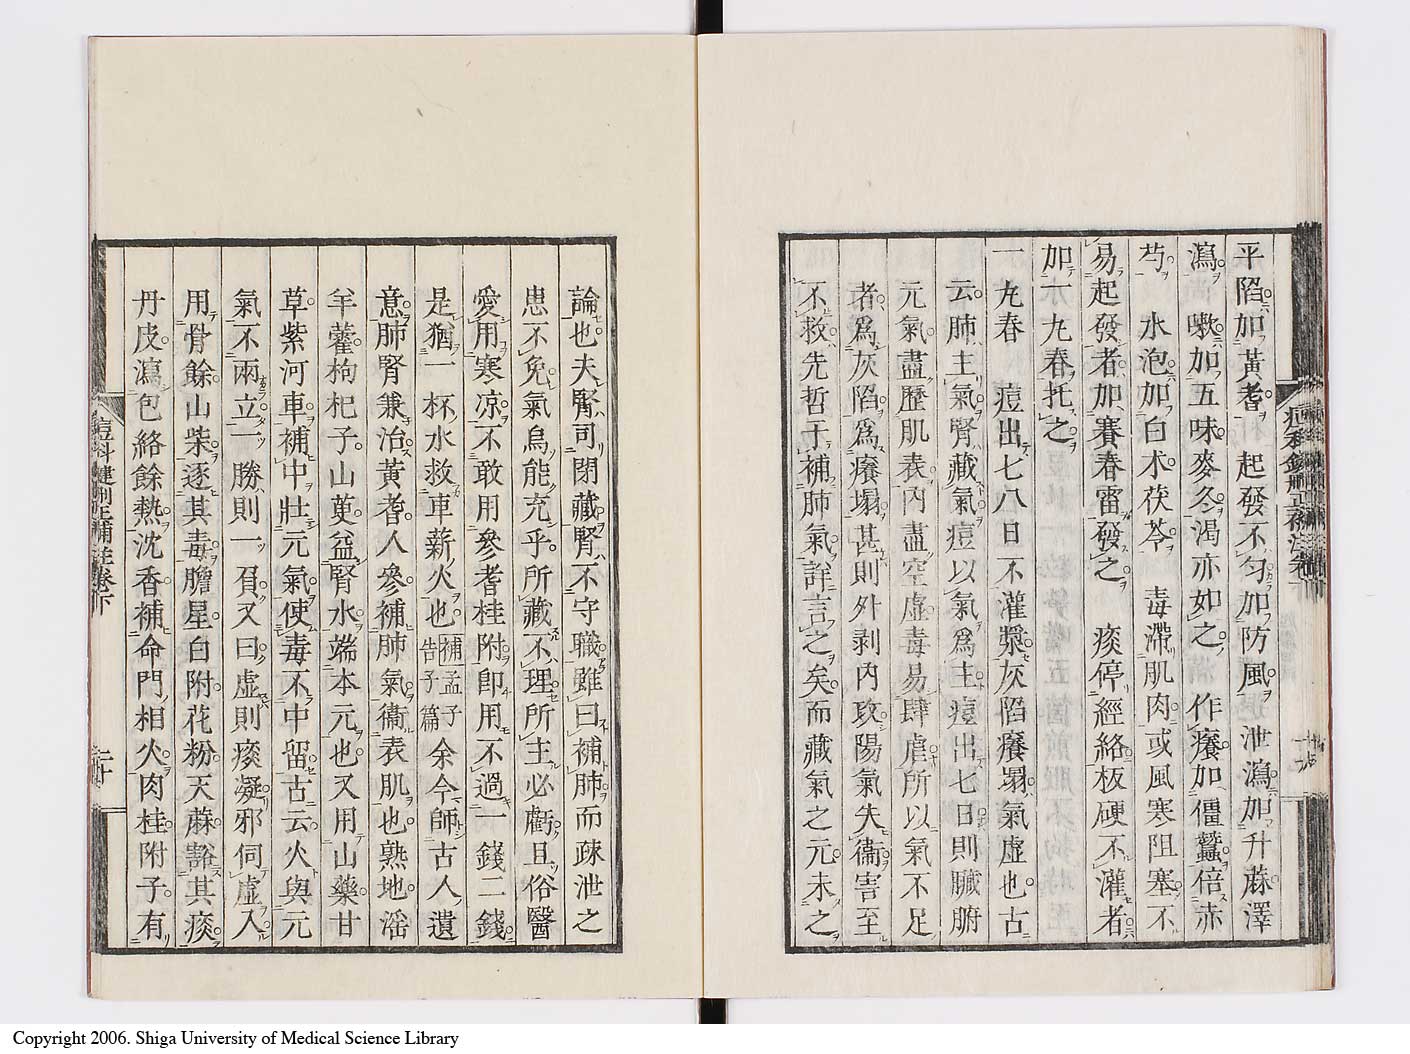 平陷加黃耆　起發不勻加防風　泄瀉加升蔴澤
瀉　嗽加五味麥冬渴亦如之　作癢加僵蠶倍赤
芍　水泡加白术茯苓　毒滯肌肉或風寒阻塞不
易起發者加賽春雷發之　痰停經絡板硬不灌者
加一九春托之
一九春　痘出七八日不灌漿灰陷癢塌氣虛也古
云肺主氣腎藏氣痘以氣爲主痘出七日則臟腑
元氣盡歷肌表內盡空虛毒易肆虐所以氣不足
者爲灰陷爲癢塌甚則外剥內攻陽氣失衞害至
不救先哲于補肺氣詳言之矣而藏氣之元未之
論也夫腎司閉藏腎不守職雖曰補肺而疎泄之
患不免氣烏能充乎所藏不理所主必虧且俗醫
愛用寒凉不敢用參耆桂附即用不過一錢二錢
是猶一杯水救車薪火也補孟子告子篇余今師古人遺
意肺腎兼治黃耆人參補肺氣衞表肌也熟地淫
羊藿枸杞子山萸益腎水端本元也又用山藥甘
草紫河車補中壯元氣使毒不中留古云火與元
氣不兩立一勝則一負又曰虛則痰凝邪伺虛入
用骨餘山柴逐其毒膽星白附花粉天蔴豁其痰
丹皮瀉包絡餘熱沈香補命門相火肉桂附子有
痘科鍵刪正補註卷下
二十
Copyright 2006. Shiga University of Medical Science Library